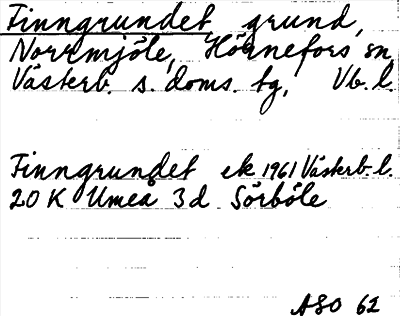 Finngrundet grund,
Norrmjöle, Hörnefors sn,
Västerb. s. doms. tg, Vb. l.
Finngrundet ek 1961 Västerb. l.
20 K Umeå 3 d Sörböle
ASO 62